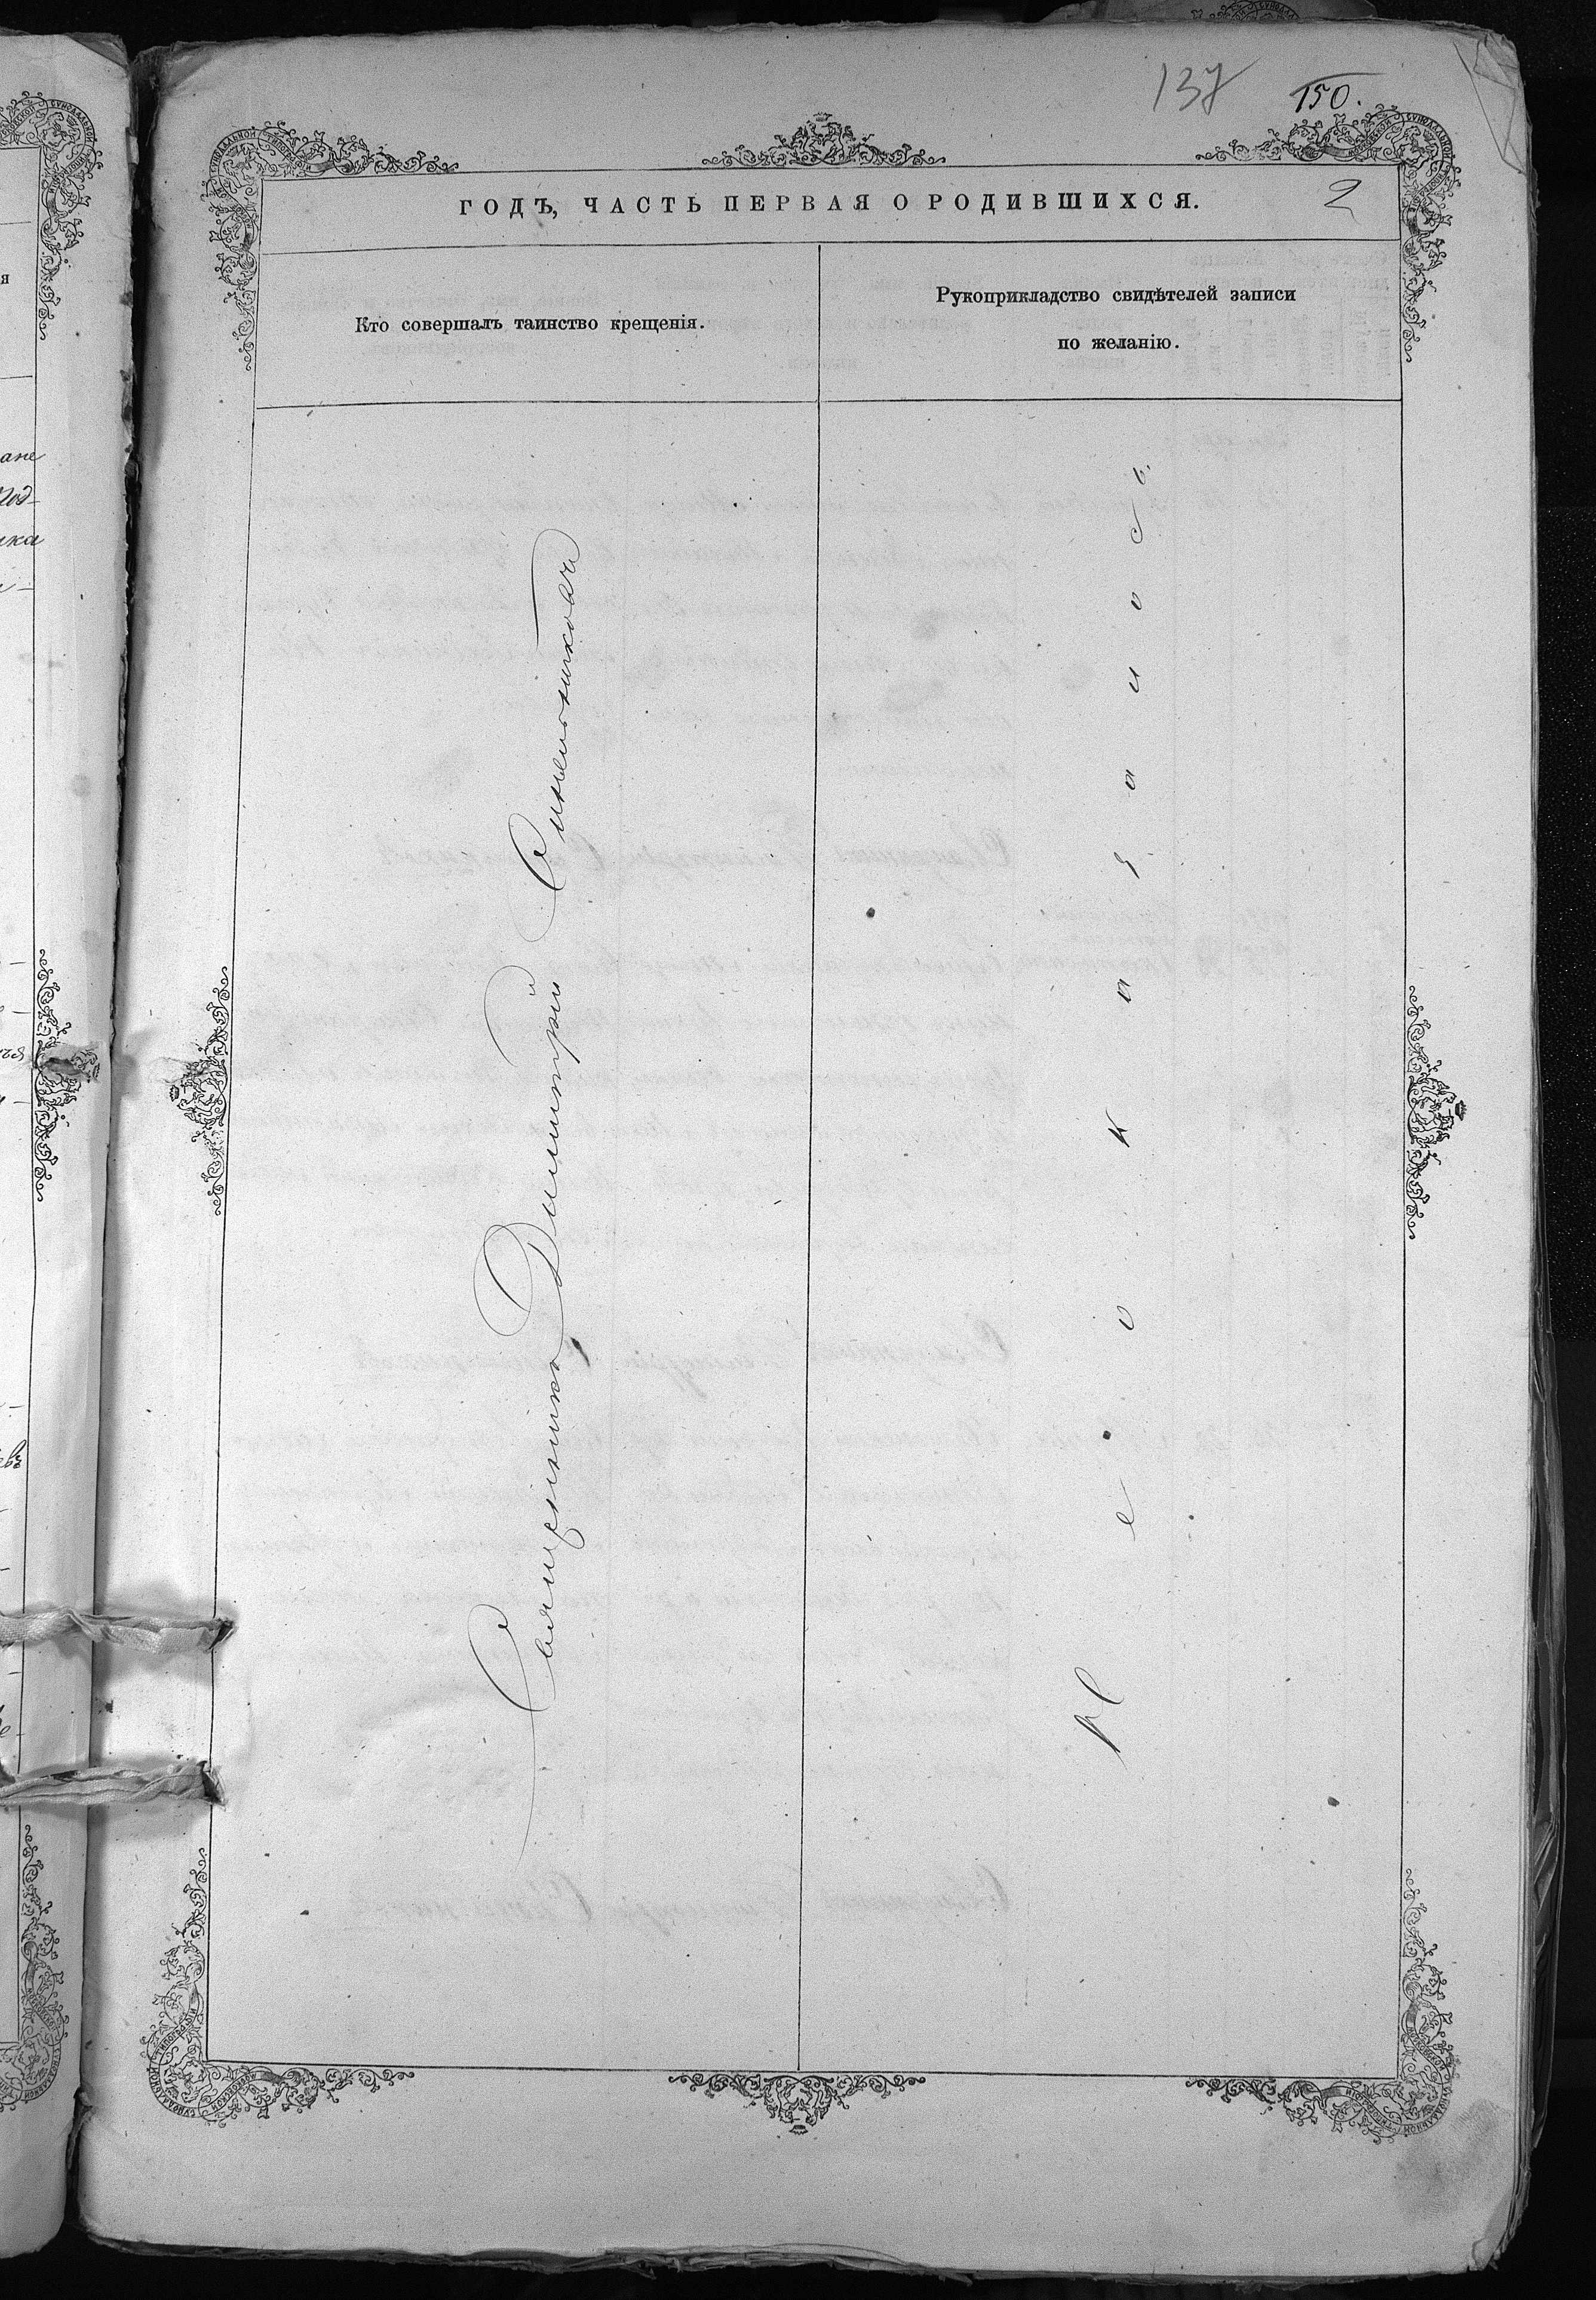 137
150.
ГОДЪ, ЧАСТЬ ПЕРВАЯ О РОДИВШИХСЯ.
2
Кто совершалъ таинство крещенія.
Рукоприкладство свидѣтелей записи
по желанію.
Священникъ Димитрій Синельниковъ
Не оказалось.